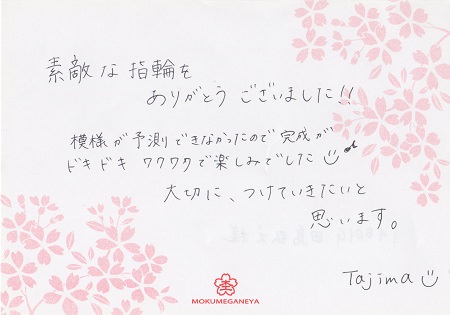 素敵な指輪を
ありがとうございました!!
模様が予測できなかったので完成が
ドキドキ ワクワクで楽しみでした
大切に、つけていきたいと
思います。
Tajima
MOKUMEGANEYA